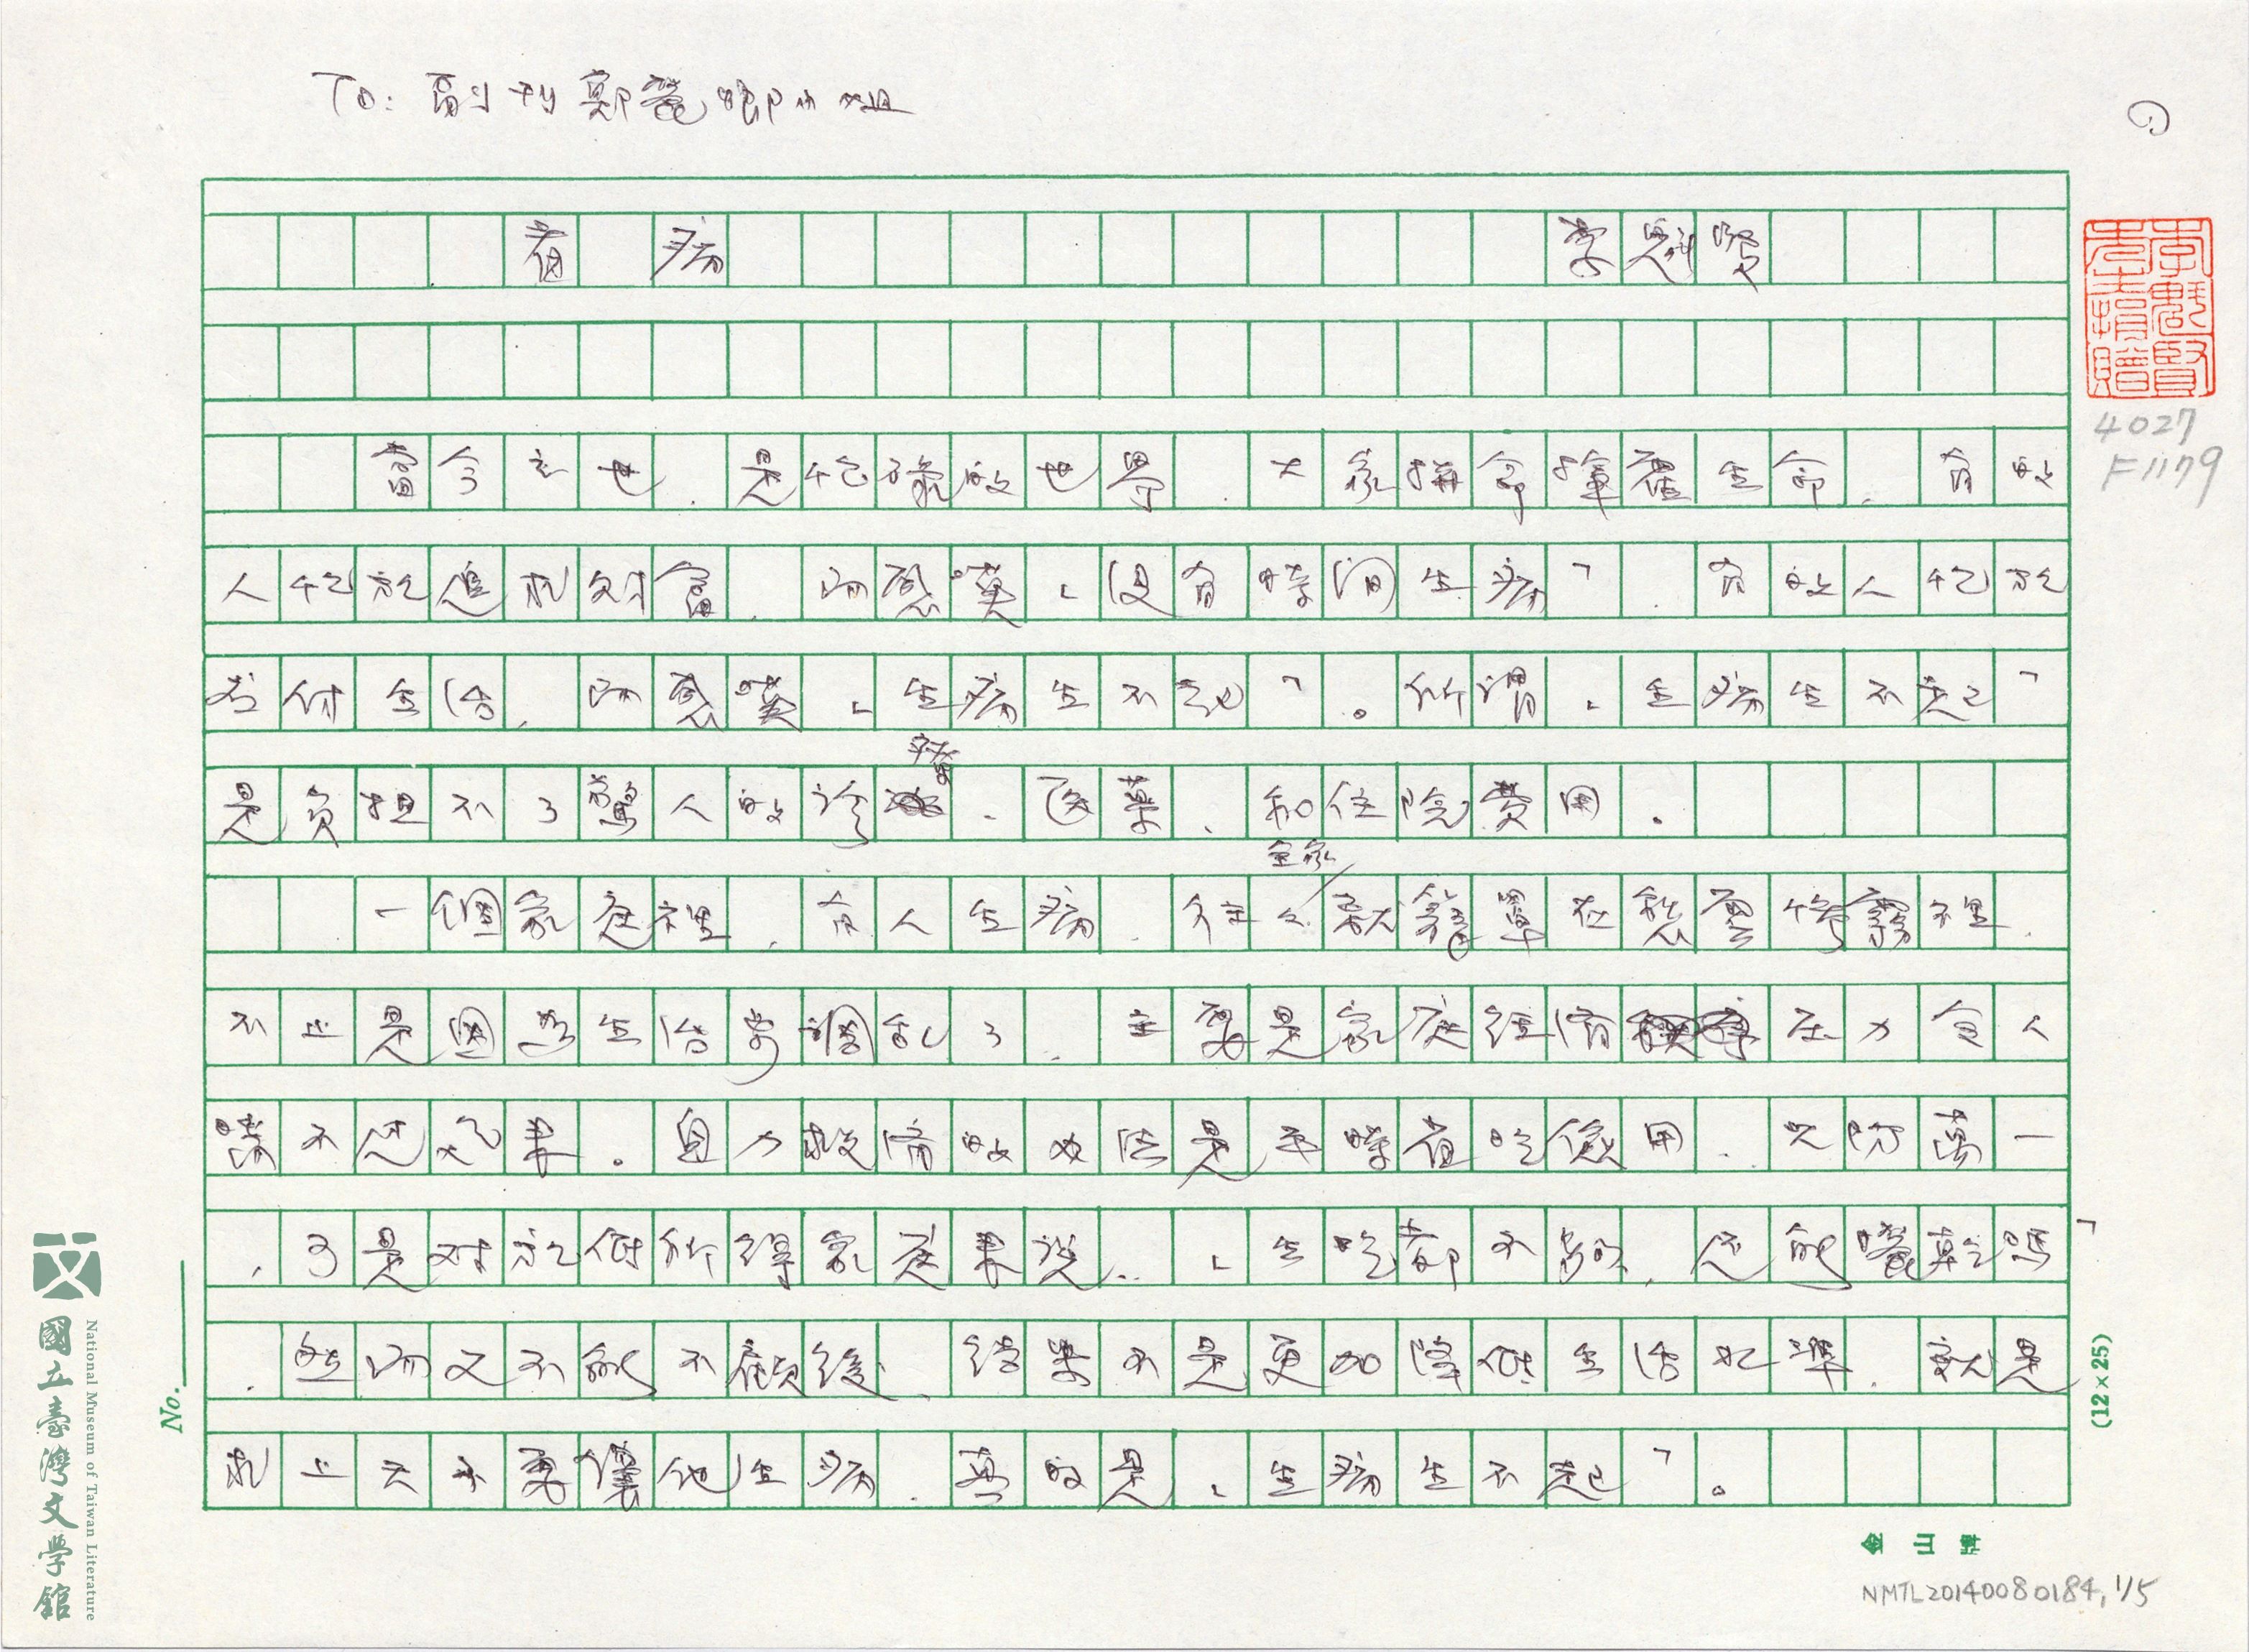 To: 副刊鄭瑩卿小姐
①
看　病　李魁賢
當今之世，是忙碌的世界，大家拼命揮霍生命，有的
人忙於追求財富，而感嘆「沒有時間生病」，有的人忙於
應付生活，而感嘆「生病生不起」。所謂「生病生不起」
是負担不了驚人的診療、医藥、和住院費用。
一個家庭裡，有人生病，往々全家就籠罩在愁雲慘霧裡，
不止是因為生活步調亂了，主要是家庭經濟压力令人
喘不过气來。自力救濟的办法是平時省吃儉用，以防萬一
，可是對於低所得家庭來說，「生吃都不夠，还能曬乾嗎」
，然而又不能不顧後，結果不是更加降低生活水準，就是
求上天不要讓他生病，真的是「生病生不起」。
李魁賢先生捐贈
4027
F1179
No.
(12×25)
金山牌
NMTL20140080184, 1/5
國立臺灣文學館
National Museum of Taiwan Literature